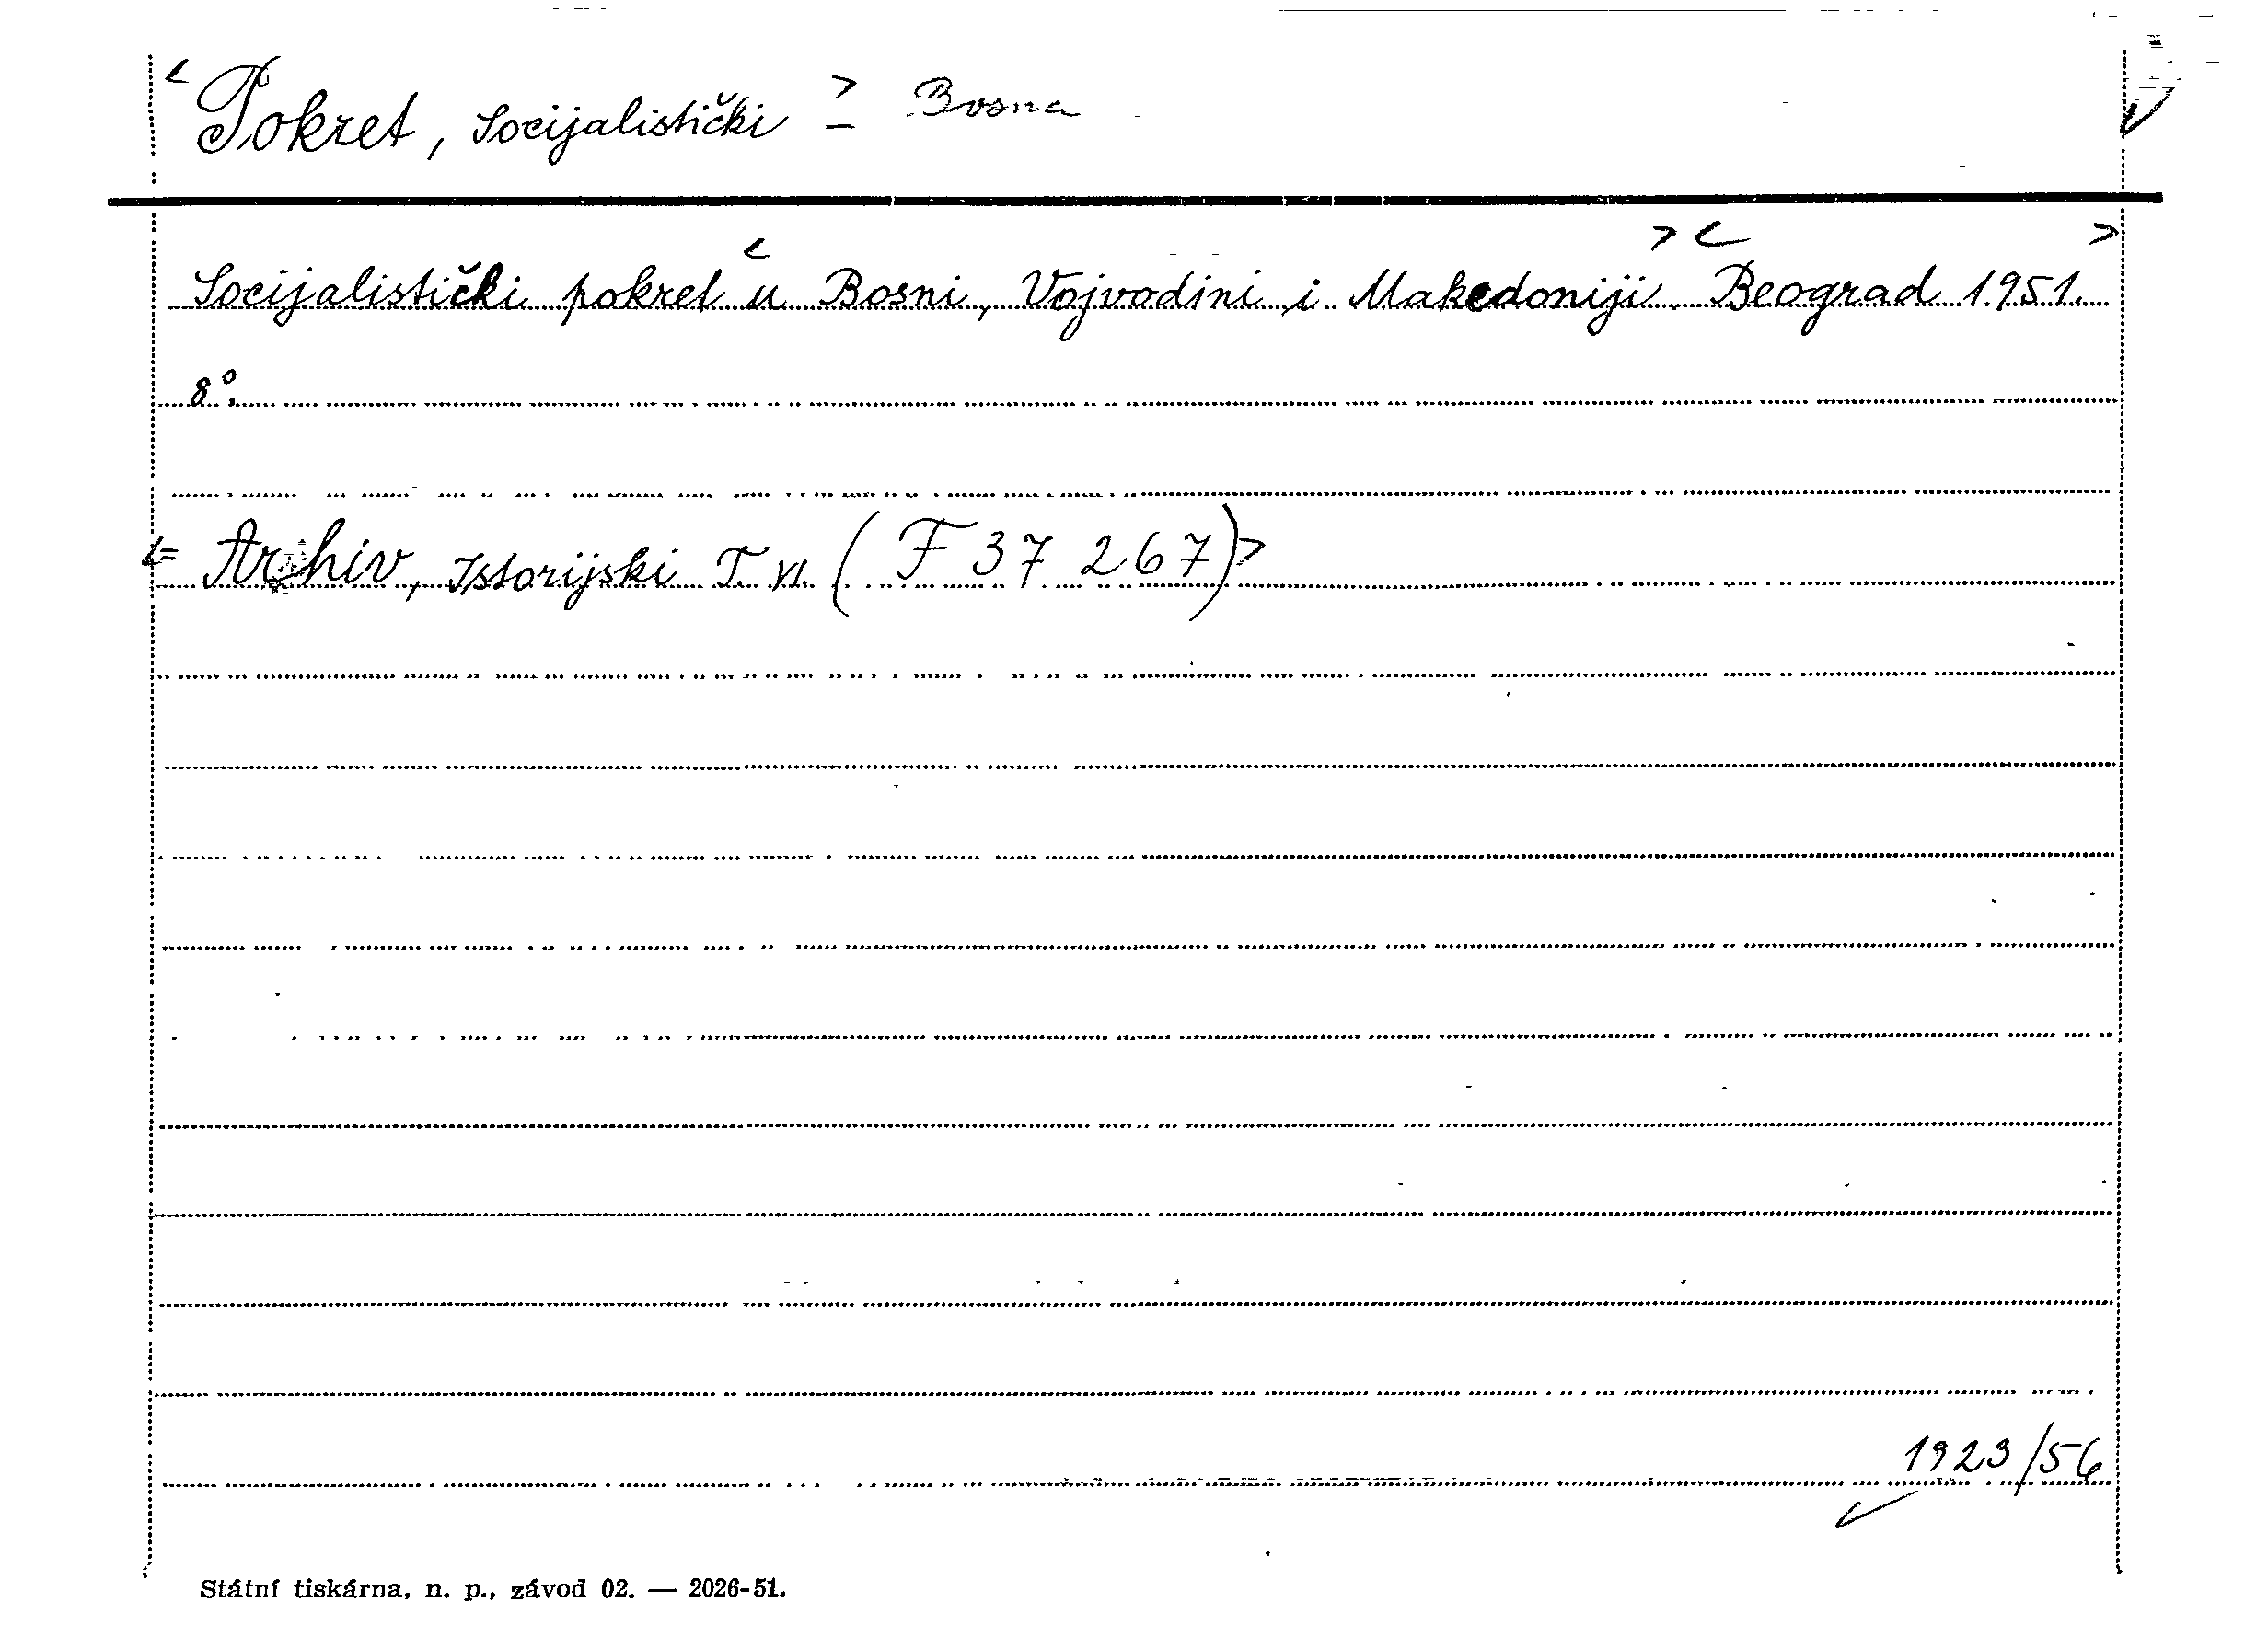 < Pokret, Socijalistički > – Bosna
Socijalistički pokret < u Bosni, Vojvodini i Makedoniji. > < Beograd 1951. >
8°.
<= Archiv, Istorijski T. VI. (F 37 267)>
1923/56
Státní tiskárna, n. p., závod 02. — 2026-51.